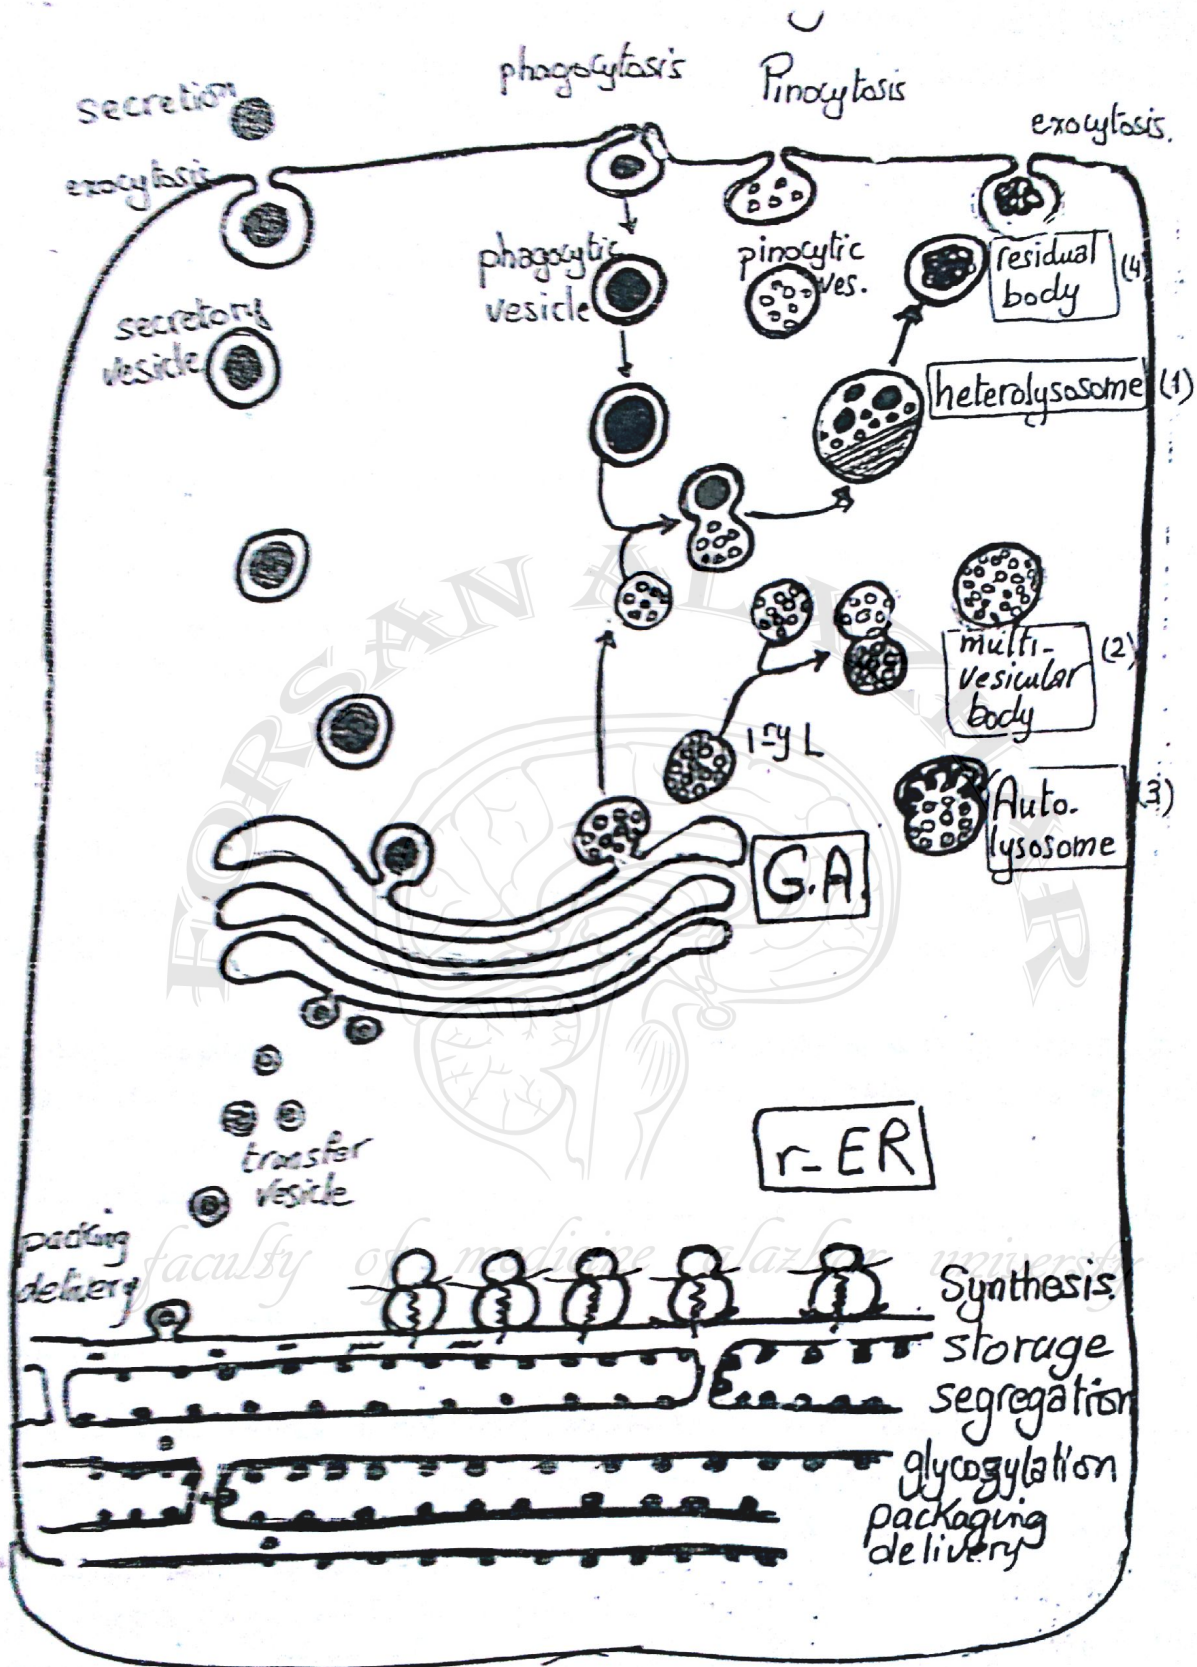 phagocytosis
Pinocytosis
secretion
exocytosis.
exocytosis
phagocytic
vesicle
pinocytic
ves.
residual
body
(4)
secretory
vesicle
heterolysosome
(1)
multi-
vesicular
body
(2)
1-ry L
Auto-
lysosome
(3)
G.A.
FORSAN ALAZHAR
r-ER
transfer
vesicle
packing
delivery
faculty of medicine alazhar university
Synthesis.
storage
segregation
glycosylation
packaging
delivery